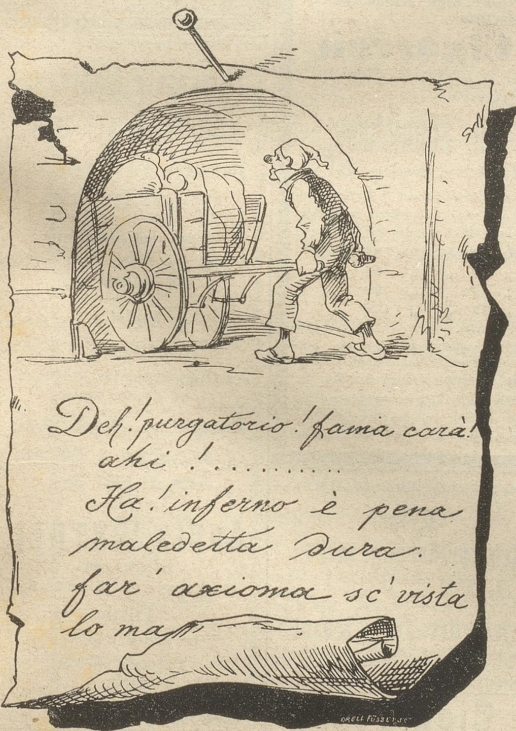 Deh! purgatorio! fama carà!
ahi !...........
Ha! inferno è pena
maledetta dura.
far' axioma sc' vista
lo map
ORELL FÜSSLI SC